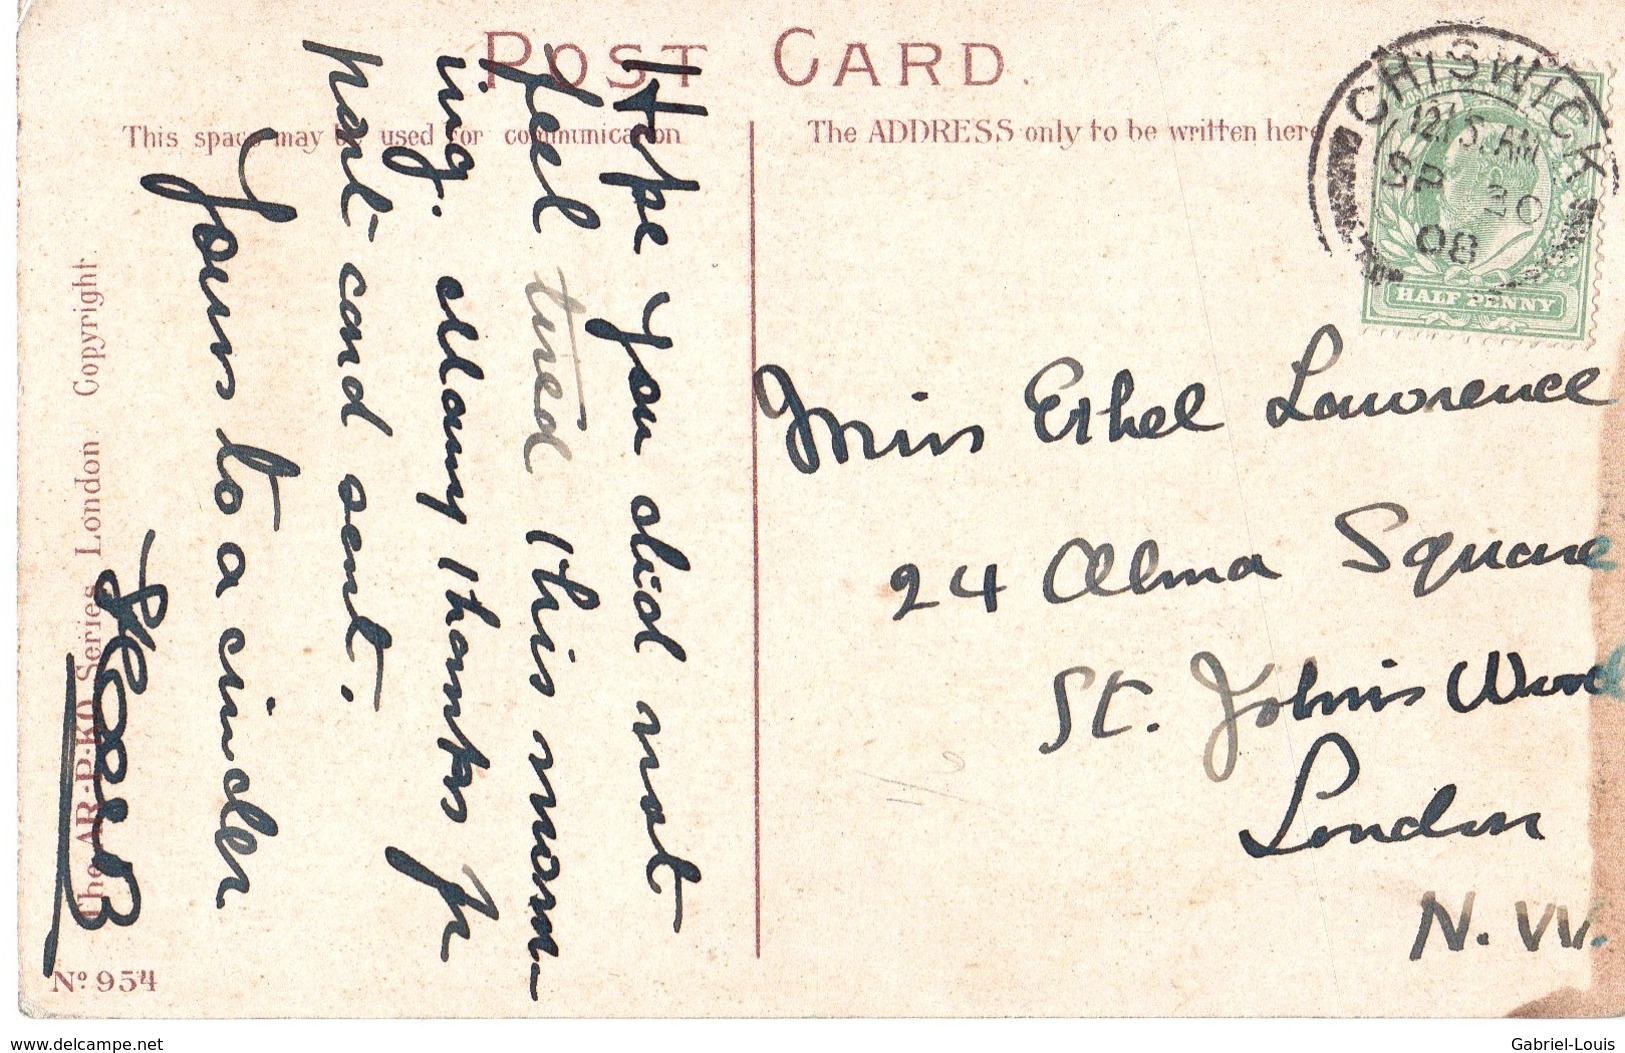 POST CARD.
This space may be used for communication
The ADDRESS only to be written here
CHISWICK
12.15.AM
SP 30
08
HALF PENNY
Hope you did not
feel tired this morn-
ing. Many thanks for
part-card sent.
Yours to a cinder
Miss Ethel Lawrence
24 Alma Square
St. John's Wood
London
N.W.
The AR·P·KO Series London Copyright
No 954
delcampe.net
Gabriel-Louis